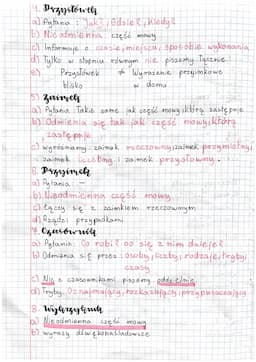 4. Przysłówek
a) Pytania : Jak? Gdzie? Kiedy?
b) Nieodmienna część mowy
c) Informuje o czasie, miejscu, sposobie wykonania
d) Tylko w stopniu równym nie piszemy łącznie
e) Przysłówek ≠ Wyrażenie przyimkowe
blisko w domu
5. Zaimek
a) Pytania : Takie same jak część mowy, którą zastępuje
b) Odmienia się tak jak część mowy, którą
zastępuje
c) wyróżniamy: zaimek rzeczowny, zaimek przymiotny,
zaimek liczebny i zaimek przysłowny.
6. Przyimek
a) Pytania : -
b) Nieodmienna część mowy
c) Łączy się z zaimkiem rzeczownym
d) Rządzi przypadkami
7. Czasownik
a) Pytania: Co robi? co się z nim dzieje?
b) Odmienia się przez : osoby, liczby, rodzaje, tryby,
czasy
c) Nie z czasownikami piszemy oddzielnie
d) Tryby: Oznajmujący, rozkazujący, przypuszczający
8. Wykrzyknik
a) Nieodmienna część mowy
b) wyrazy dźwiękonaśladowcze